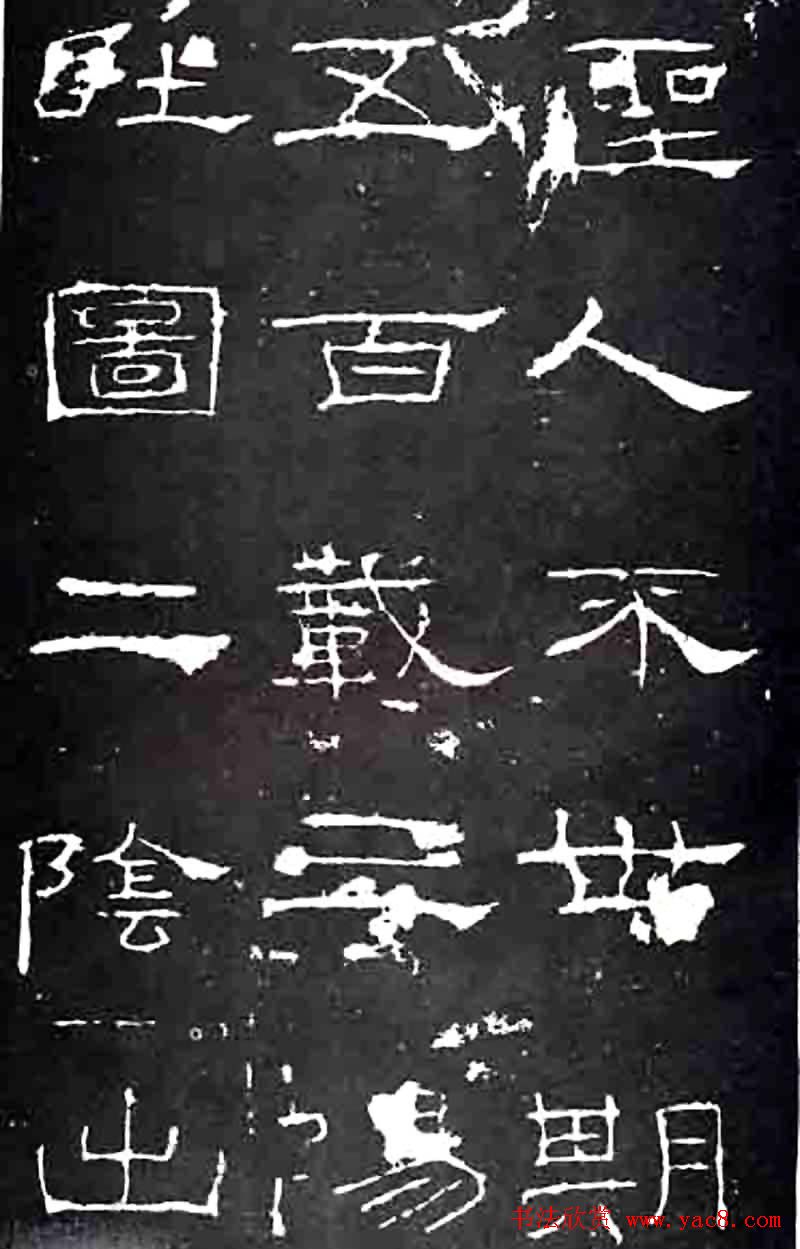 聖人不世期
五百載三陽
吐圖二陰出
书法欣赏 www.yac8.com